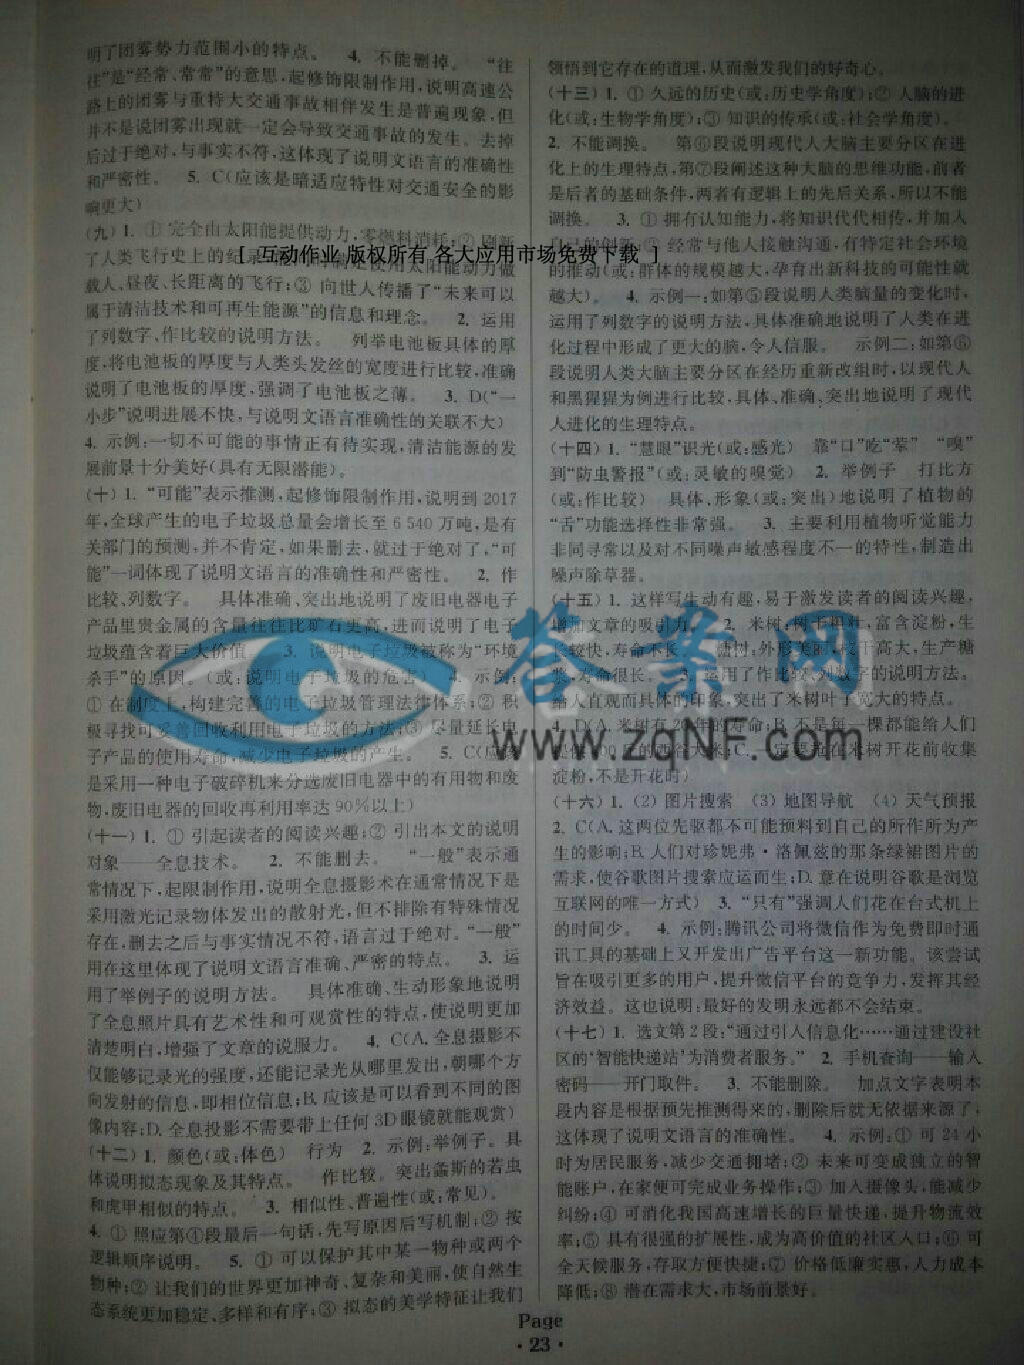 明了团雾势力范围小的特点。 4. 不能删掉。 “往
往”是“经常、常常”的意思，起修饰限制作用，说明高速公
路上的团雾与重特大交通事故相伴发生是普遍现象，但
并不是说团雾出现就一定会导致交通事故的发生。去掉
后过于绝对，与事实不符，这体现了说明文语言的准确性
和严密性。 5. C(应该是暗适应特性对交通安全的影
响更大)
(九) 1. ① 完全由太阳能提供动力，零燃料消耗；② 刷新
了人类飞行史上的纪录
[ 互动作业 版权所有 各大应用市场免费下载 ]
载人、昼夜、长距离的飞行；③ 向世人传播了“未来可以
属于清洁技术和可再生能源”的信息和理念。 2. 运用
了列数字、作比较的说明方法。 列举电池板具体的厚
度，将电池板的厚度与人类头发丝的宽度进行比较，准确
说明了电池板的厚度，强调了电池板之薄。 3. D(“一
小步”说明进展不快，与说明文语言准确性的关联不大)
4. 示例：一切不可能的事情正有待实现，清洁能源的发
展前景十分美好(具有无限潜能)。
(十) 1. “可能”表示推测，起修饰限制作用，说明到 2017
年，全球产生的电子垃圾总量会增长至 6 540 万吨，是有
关部门的预测，并不肯定，如果删去，就过于绝对了，“可
能”一词体现了说明文语言的准确性和严密性。 2. 作
比较、列数字。 具体准确、突出地说明了废旧电器电子
产品里贵金属的含量往往比矿石更高，进而说明了电子
垃圾蕴含着巨大价值。 3. 说明电子垃圾被称为“环境
杀手”的原因。(或：说明电子垃圾的危害) 4. 示例：
① 在制度上，构建完善的电子垃圾管理法律体系；② 积
极寻找可妥善回收利用电子垃圾的方法；③ 尽量延长电
子产品的使用寿命，减少电子垃圾的产生。 5. C(应该
是采用一种电子破碎机来分选废旧电器中的有用物和废
物，废旧电器的回收再利用率达 90%以上)
(十一) 1. ① 引起读者的阅读兴趣；② 引出本文的说明
对象——全息技术。 2. 不能删去。 “一般”表示通
常情况下，起限制作用，说明全息摄影术在通常情况下是
采用激光记录物体发出的散射光，但不排除有特殊情况
存在，删去之后与事实情况不符，语言过于绝对。“一般”
用在这里体现了说明文语言准确、严密的特点。 3. 运
用了举例子的说明方法。 具体准确、生动形象地说明
了全息照片具有艺术性和可观赏性的特点，使说明更加
清楚明白，增强了文章的说服力。 4. C(A. 全息摄影不
仅能够记录光的强度，还能记录光从哪里发出，朝哪个方
向发射的信息，即相位信息；B. 应该是可以看到不同的图
像内容；D. 全息投影不需要带上任何 3D 眼镜就能观赏)
(十二) 1. 颜色(或：体色) 行为 2. 示例：举例子。具
体说明拟态现象及其特点。 作比较。突出螽斯的若虫
和虎甲相似的特点。 3. 相似性、普遍性(或：常见)。
4. ① 照应第④段最后一句话，先写原因后写机制；② 按
逻辑顺序说明。 5. ① 可以保护其中某一物种或两个
物种；② 让我们的世界更加神奇、复杂和美丽，使自然生
态系统更加稳定、多样和有序；③ 拟态的美学特征让我们
领悟到它存在的道理，从而激发我们的好奇心。
(十三) 1. ① 久远的历史(或：历史学角度)；② 人脑的进
化(或：生物学角度)；③ 知识的传承(或：社会学角度)。
2. 不能调换。 第⑥段说明现代人大脑主要分区在进
化上的生理特点，第⑦段阐述这种大脑的思维功能，前者
是后者的基础条件，两者有逻辑上的先后关系，所以不能
调换。 3. ① 拥有认知能力，将知识代代相传，并加入
自己的创新；② 经常与他人接触沟通，有特定社会环境
的推动(或：群体的规模越大，孕育出新科技的可能性就
越大)。 4. 示例一：如第⑤段说明人类脑量的变化时，
运用了列数字的说明方法，具体准确地说明了人类在进
化过程中形成了更大的脑，令人信服。 示例二：如第⑥
段说明人类大脑主要分区在经历重新改组时，以现代人
和黑猩猩为例进行比较，具体、准确、突出地说明了现代
人进化的生理特点。
(十四) 1. “慧眼”识光(或：感光) 靠“口”吃“荤” “嗅”
到“防虫警报”(或：灵敏的嗅觉) 2. 举例子 打比方
(或：作比较) 具体、形象(或：突出)地说明了植物的
“舌”功能选择性非常强。 3. 主要利用植物听觉能力
非同寻常以及对不同噪声敏感程度不一的特性，制造出
噪声除草器。
(十五) 1. 这样写生动有趣，易于激发读者的阅读兴趣，
增加文章的吸引力。 2. 米树：树干粗壮，富含淀粉，生
长较快，寿命不长。 糖树：外形美丽，枝干高大，生产糖
浆，寿命很长。 3. 运用了作比较、列数字的说明方法。
给人直观而具体的印象，突出了米树叶子宽大的特点。
4. D(A. 米树有 20 年的寿命；B. 不是每一棵都能给人们
提供 100 斤的西谷大米；C. 一定要赶在米树开花前收集
淀粉，不是开花时)
答案网
www.zqNF.com
(十六) 1. (2) 图片搜索 (3) 地图导航 (4) 天气预报
2. C(A. 这两位先驱都不可能预料到自己的所作所为产
生的影响；B. 人们对珍妮弗·洛佩兹的那条绿裙图片的
需求，使谷歌图片搜索应运而生；D. 意在说明谷歌是浏览
互联网的唯一方式) 3. “只有”强调人们花在台式机上
的时间少。 4. 示例：腾讯公司将微信作为免费即时通
讯工具的基础上又开发出广告平台这一新功能。该尝试
旨在吸引更多的用户，提升微信平台的竞争力，发挥其经
济效益。这也说明：最好的发明永远都不会结束。
(十七) 1. 选文第 2 段：“通过引入信息化……通过建设社
区的‘智能快递站’为消费者服务。” 2. 手机查询——输入
密码——开门取件。 3. 不能删除。 加点文字表明本
段内容是根据预先推测得来的，删除后就无依据来源了，
这体现了说明文语言的准确性。 4. 示例：① 可 24 小
时为居民服务，减少交通拥堵；② 未来可变成独立的智
能账户，在家便可完成业务操作；③ 加入摄像头，能减少
纠纷；④ 可消化我国高速增长的巨量快递，提升物流效
率；⑤ 具有很强的扩展性，成为高价值的社区入口；⑥ 可
全天候服务，存取方便快捷；⑦ 价格低廉实惠，人力成本
降低；⑧ 潜在需求大，市场前景好。
Page
· 23 ·